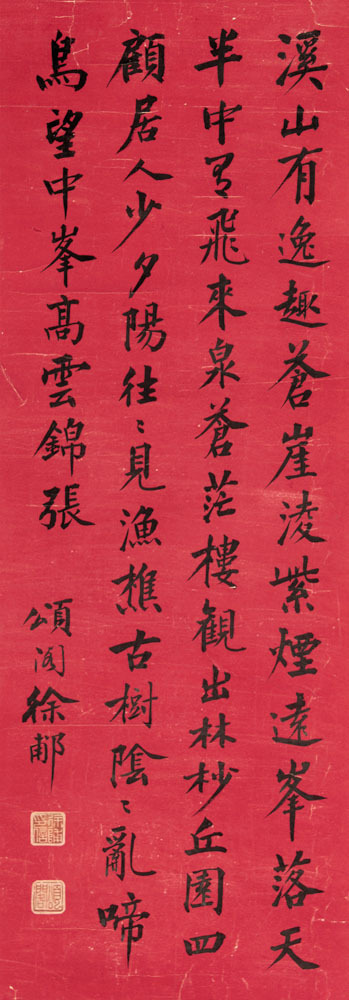 溪山有逸趣蒼崖淩紫煙遠峯落天
半中有飛來泉蒼茫樓観出林杪丘園四
顧居人少夕陽往〻見漁樵古樹陰〻亂啼
鳥望中峯高雲錦張
頌閣徐郙